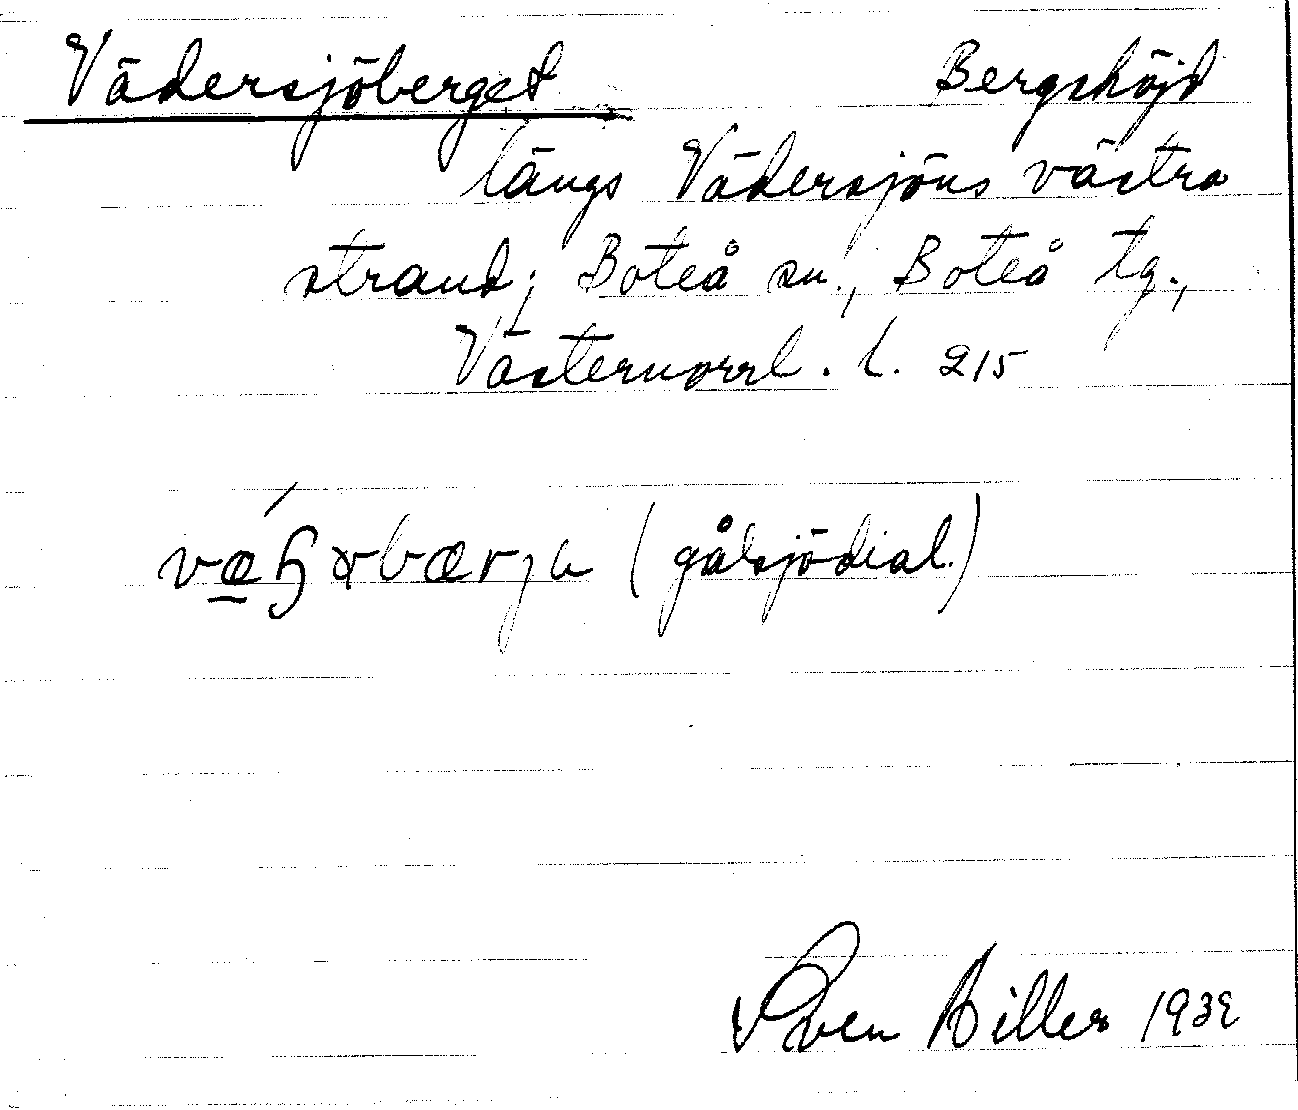 Vädersjöberget Bergshöjd
längs Vädersjöns västra
strand; Boteå sn., Boteå tg.,
Västernorrl. l. 215
(gålsjödial.)
Sven Hiller 1932